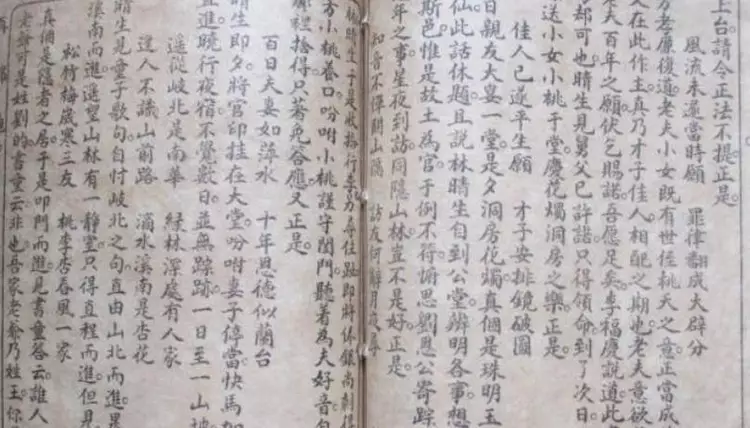 上台請令正法不提正是。
風流未遂當時願 罪律翻成大辟分
方老廉復道老夫小女既有世姪桃夭之意正當成
文在此作主真乃才子佳人。相配之期也。老夫意欲
夫百年之願伏乞賜諾吾愿足矣。李福慶說道此
都可也。晴生見舅父已許諾。只得領命到了次日。
送小女小桃于堂慶花燭洞房之樂正是
佳人已遂平生願 才子安排鏡破圓
日親友大宴一堂。是夕洞房花燭真個是珠明玉
仙此話休題且說林晴生自到公堂辨明各事。想
斯邑惟是故土為官于例不符。思劉恩公寄踪
年之事。星夜到訪同隱山林豈不是好正是
知音不憚關山隔 訪友何辭月夜尋
晴生于是收拾行李另尋住趾即將俸銀尚剩得
方小桃養口吩咐小桃謹守閨門聽著為夫好音
那裡捨得。只著免答應又正是
百日夫妻如萍水 十年恩德似蘭台
晴生即夕將官印挂在大堂吩咐妻子停當快馬加
且進曉行夜宿不覺數日。並無踪跡。一日至一山坡
遙從岐北是南華 綠林深處有人家
達人不識山前路 滿水溪南是杏花
晴生見童子歌句。自忖岐北之句直由山北而進。是
溪南而進遙望山林有一靜室只得直程而進但見
松竹梅歲寒三友 桃李杏春風一家
真個是隱者之居。于是叩門而進。見書童答云誰人
老爺可是姓劉的書童云非也。吾家老爺乃姓王你